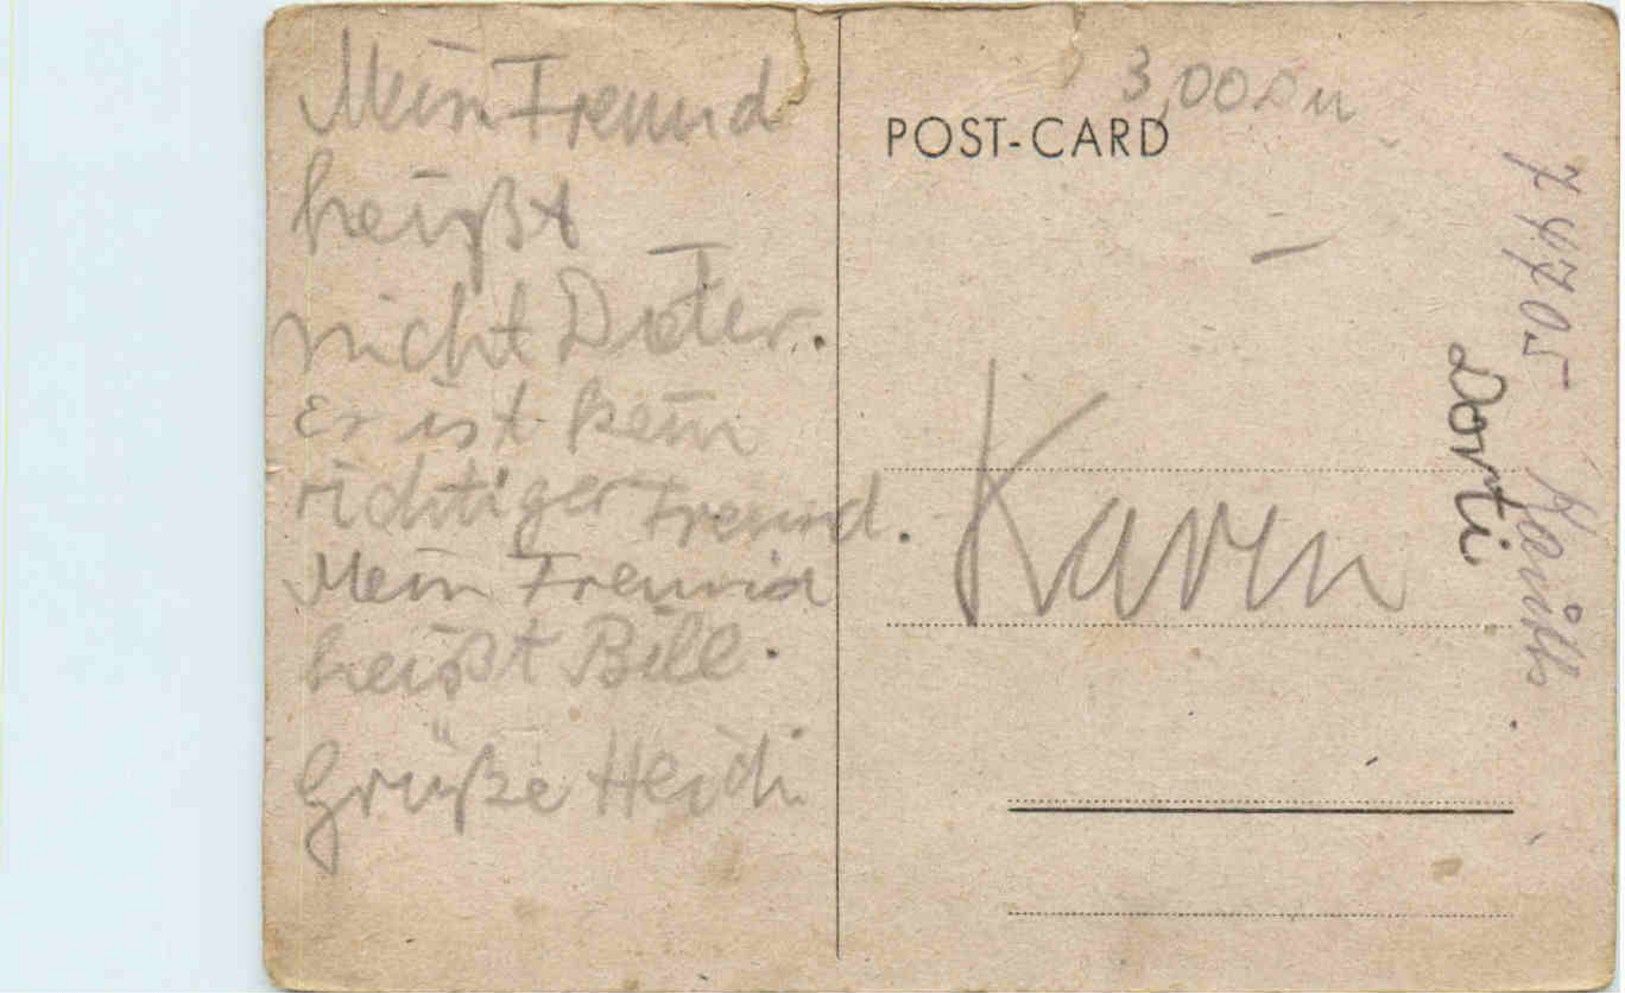 Mein Freund
heißt
nicht Dieter.
Er ist kein
richtiger Freund.
Mein Freund
heißt Bill.
Grüße Heidi
3,00
POST-CARD
Karin
Dorti